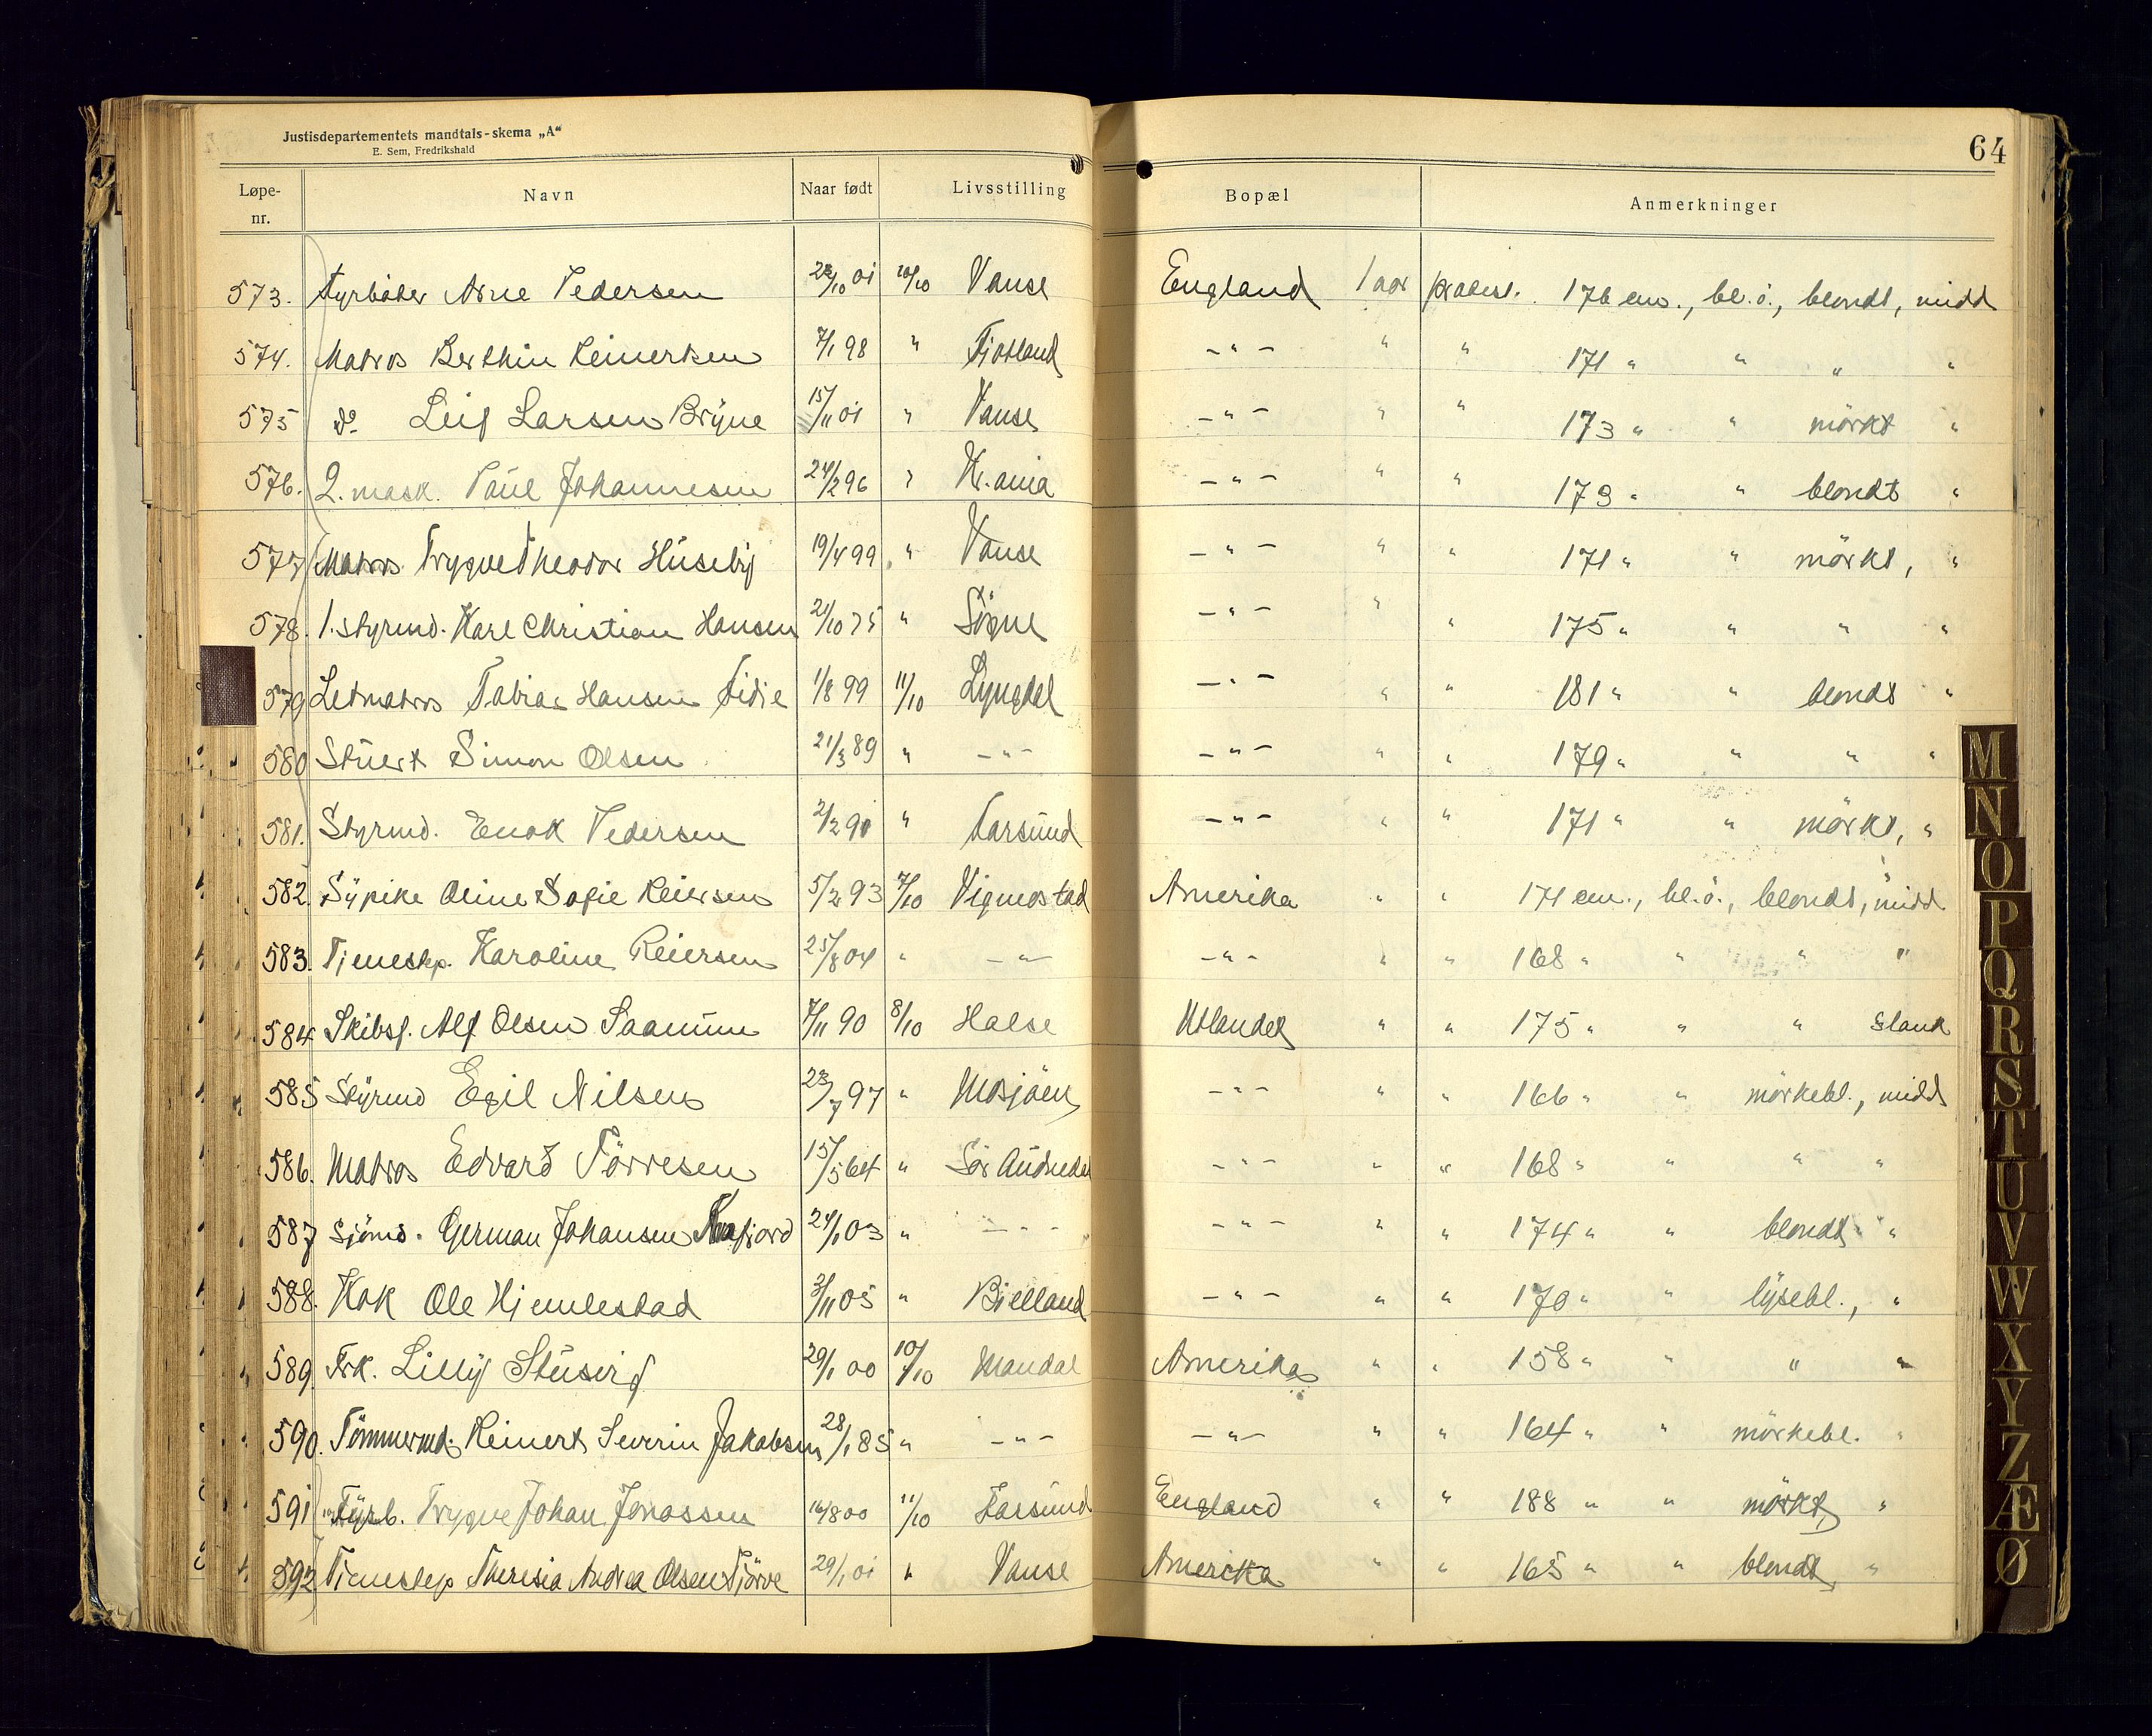 Justisdepartementets mandtals-skema „A“
E. Sem, Fredrikshald
64
Løpe-nr. Navn Naar født Livsstilling Bopæl Anmerkninger
573. Fyrbøter Arne Pedersen 23/10 01 10/10 Vanse England 1 aar protest. 176 cm., bl. ö., blondt, midd
574. Matros Berthin Reinertsen 7/1 98 " Fjotland - " - " " 171 " " " "
575 do Leif Larsen Bryne 15/11 01 " Vanse - " - " " 173 " " mörkt "
576. 2. mask. Paul Johannesen 24/2 96 " Kr.ania - " - " " 173 " " blondt "
577 Matros Trygve Theodor Huseby 19/4 99 " Vanse - " - " " 171 " " mörkt, "
578. 1. styrmd. Karl Christian Hansen 21/10 75 " Sögne - " - " " 175 " " " "
579 Letmatros Tobias Hansen 1/8 99 11/10 Lyngdal - " - " " 181 " " blondt "
580 Stuert Simon Olsen 21/3 89 " - " - - " - " " 179 " " " "
581. Styrmd. Enok Pedersen 2/2 90 " Farsund - " - " " 171 " " mörkt, "
582. Sypike Oline Sofie Reiersen 5/2 93 7/10 Vigmostad Amerika " " 171 cm., bl. ö., blondt, midd
583. Tjenestep. Karoline Reiersen 25/8 04 " - " - - " - " " 168 " " " "
584 Skibsf. Alf Olsen Saanum 7/11 90 8/10 Halse Utlandet " " 175 " " " slank
585 Styrmd Egil Nilsen 23/7 97 " Mosjöen - " - " " 166 " " mörkebl., midd
586. Matros Edvard Törresen 15/5 64 " Sör Audnedal - " - " " 168 " " " "
587 Sjömd. German Johansen 24/1 03 " - " - - " - " " 174 " " blondt "
588. Kok Ole Hjemlestad 3/11 05 " Bjelland - " - " " 170 " " lysebl., "
589. Frk. Lilly Stusvig 29/1 00 10/10 Mandal Amerika " " 158 " " " "
590. Tömmermd. Reinert Severin Jakobsen 28/1 85 " - " - - " - " " 164 " " mörkebl. "
591 Fyrb. Trygve Johan Jonassen 16/8 00 11/10 Farsund England " " 188 " " mörkt, "
592 Tjenestep Theresia Andrea Olsen Tjörve 29/1 01 " Vanse Amerika " " 165 " " blondt, "
M
N
O
P
Q
R
S
T
U
V
W
X
Y
Z
Æ
Ø